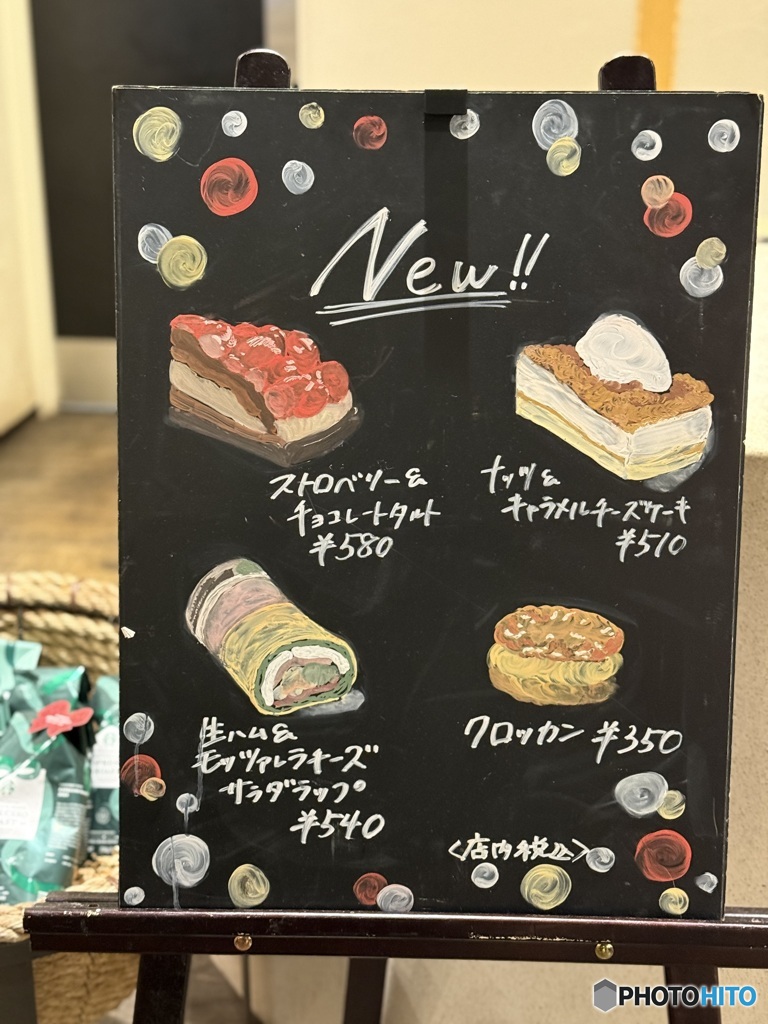 New!!
ストロベリー&
チョコレートタルト
¥580
ナッツ&
キャラメルチーズケーキ
¥510
生ハム&
モッツァレラチーズ
サラダラップ
¥540
クロッカン ¥350
<店内税込>
PHOTOHITO